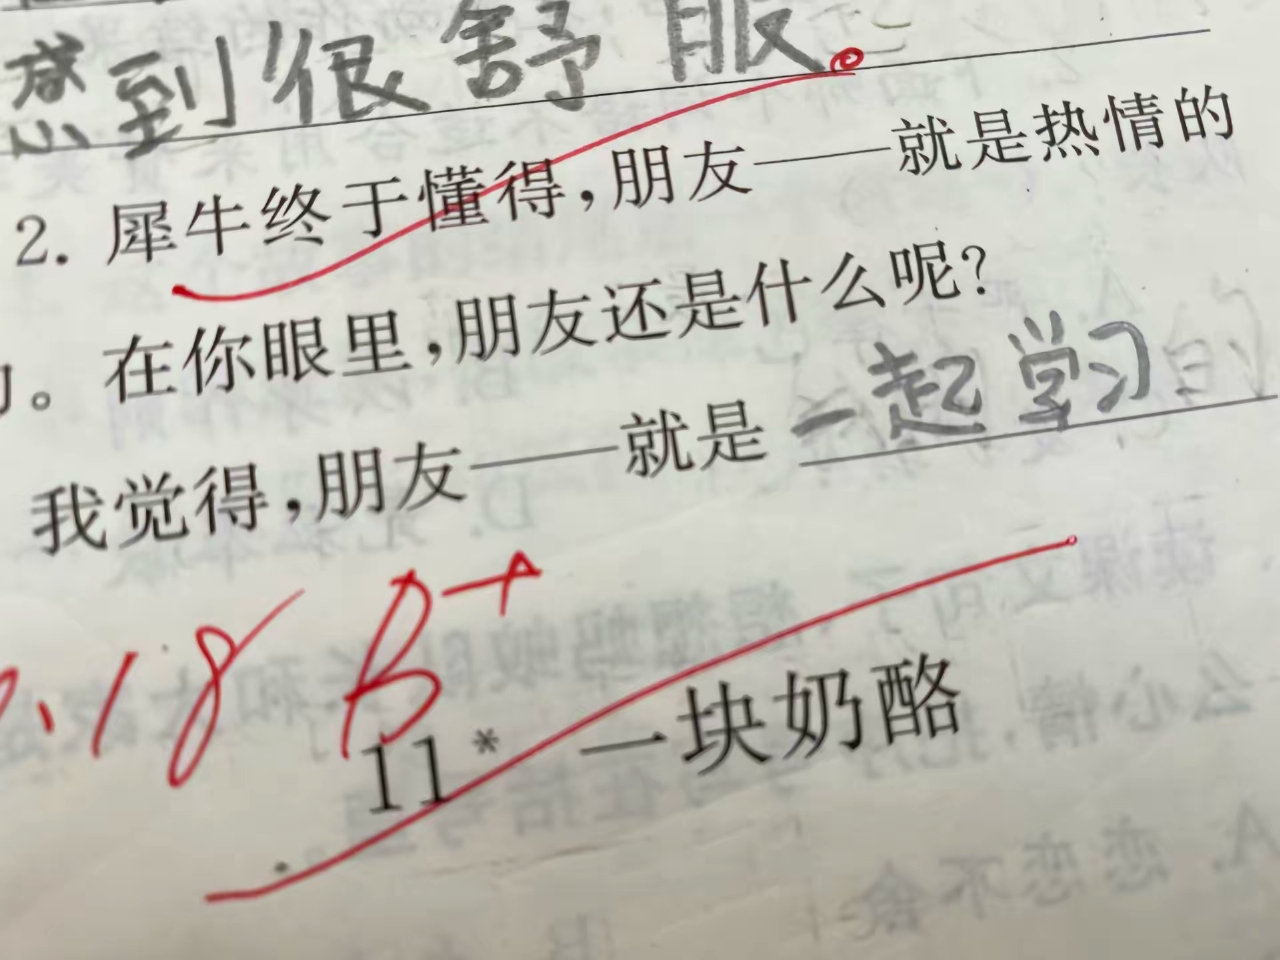 感到很舒服。
2. 犀牛终于懂得，朋友——就是热情的
。在你眼里，朋友还是什么呢？
我觉得，朋友——就是 一起学习
.18 B+
11* 一块奶酪